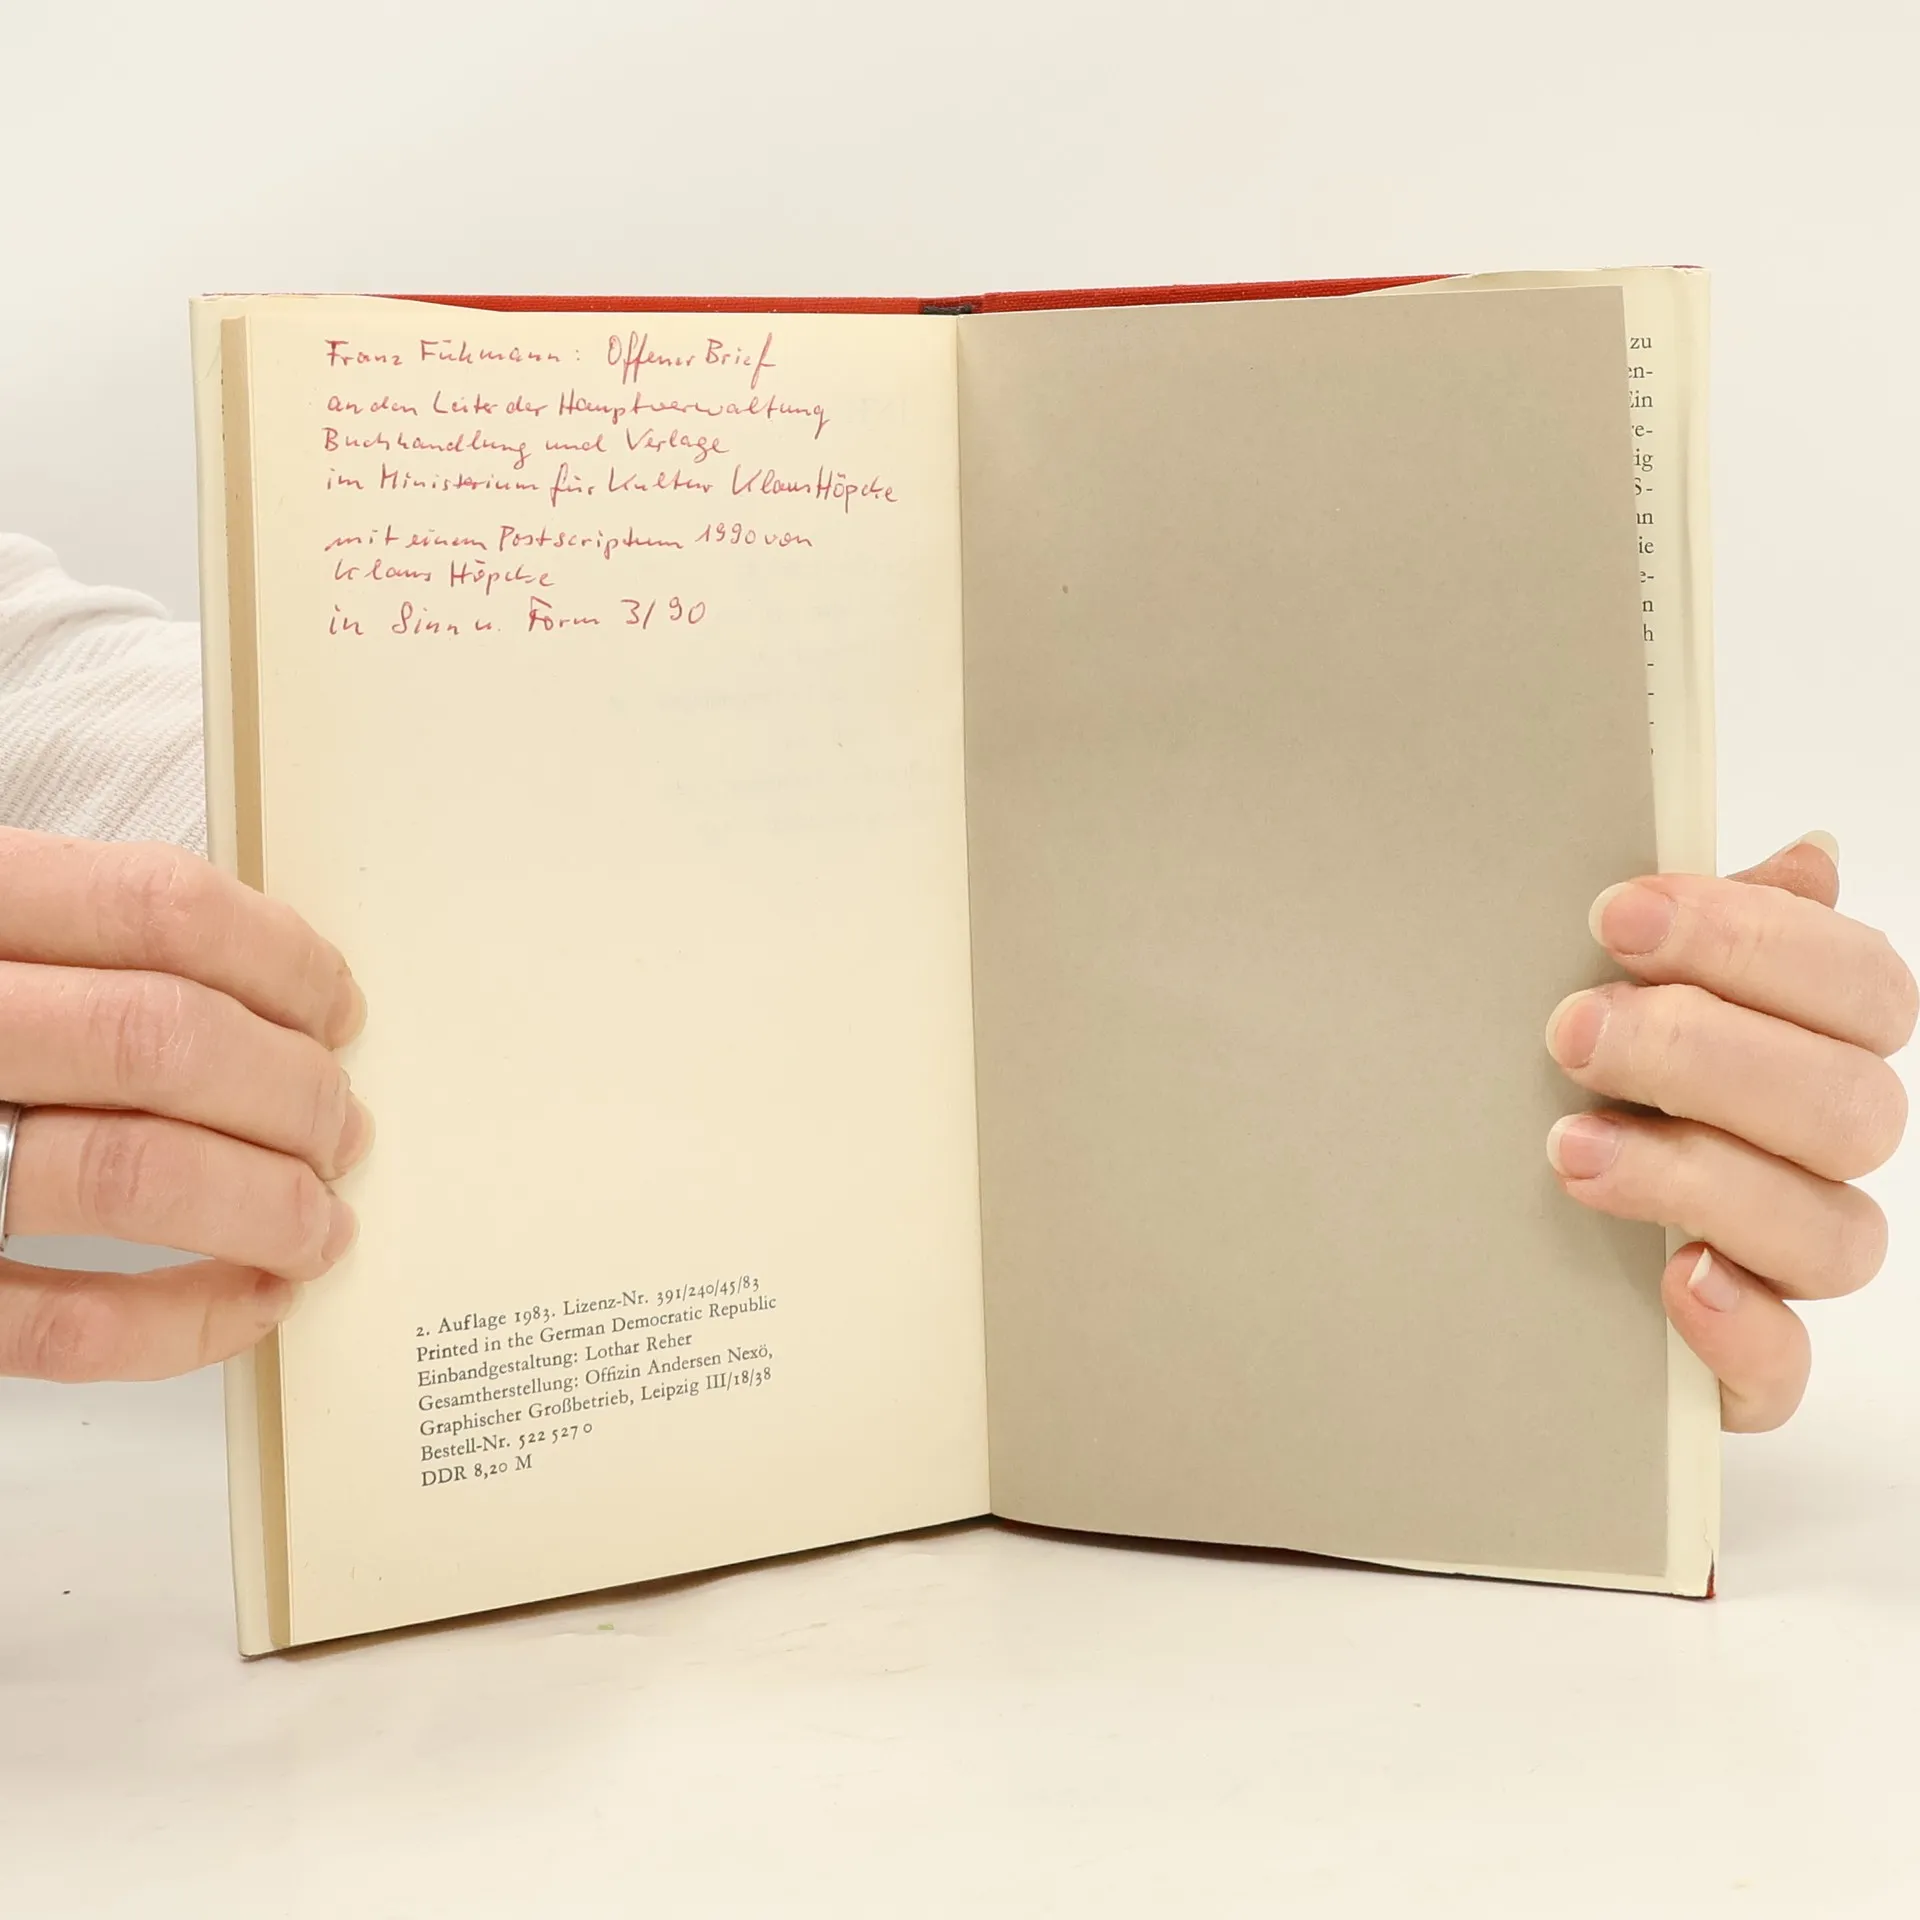 Franz Fühmann: Offener Brief
an den Leiter der Hauptverwaltung
Buchhandlung und Verlage
im Ministerium für Kultur Klaus Höpcke
mit einem Postscriptum 1990 von
Klaus Höpcke
in Sinn u. Form 3/90
2. Auflage 1983. Lizenz-Nr. 391/240/45/83
Printed in the German Democratic Republic
Einbandgestaltung: Lothar Reher
Gesamtherstellung: Offizin Andersen Nexö,
Graphischer Großbetrieb, Leipzig III/18/38
Bestell-Nr. 522 527 0
DDR 8,20 M
zu
en-
Ein
re-
ig
S-
nn
ie
e-
n
h
-
-
-